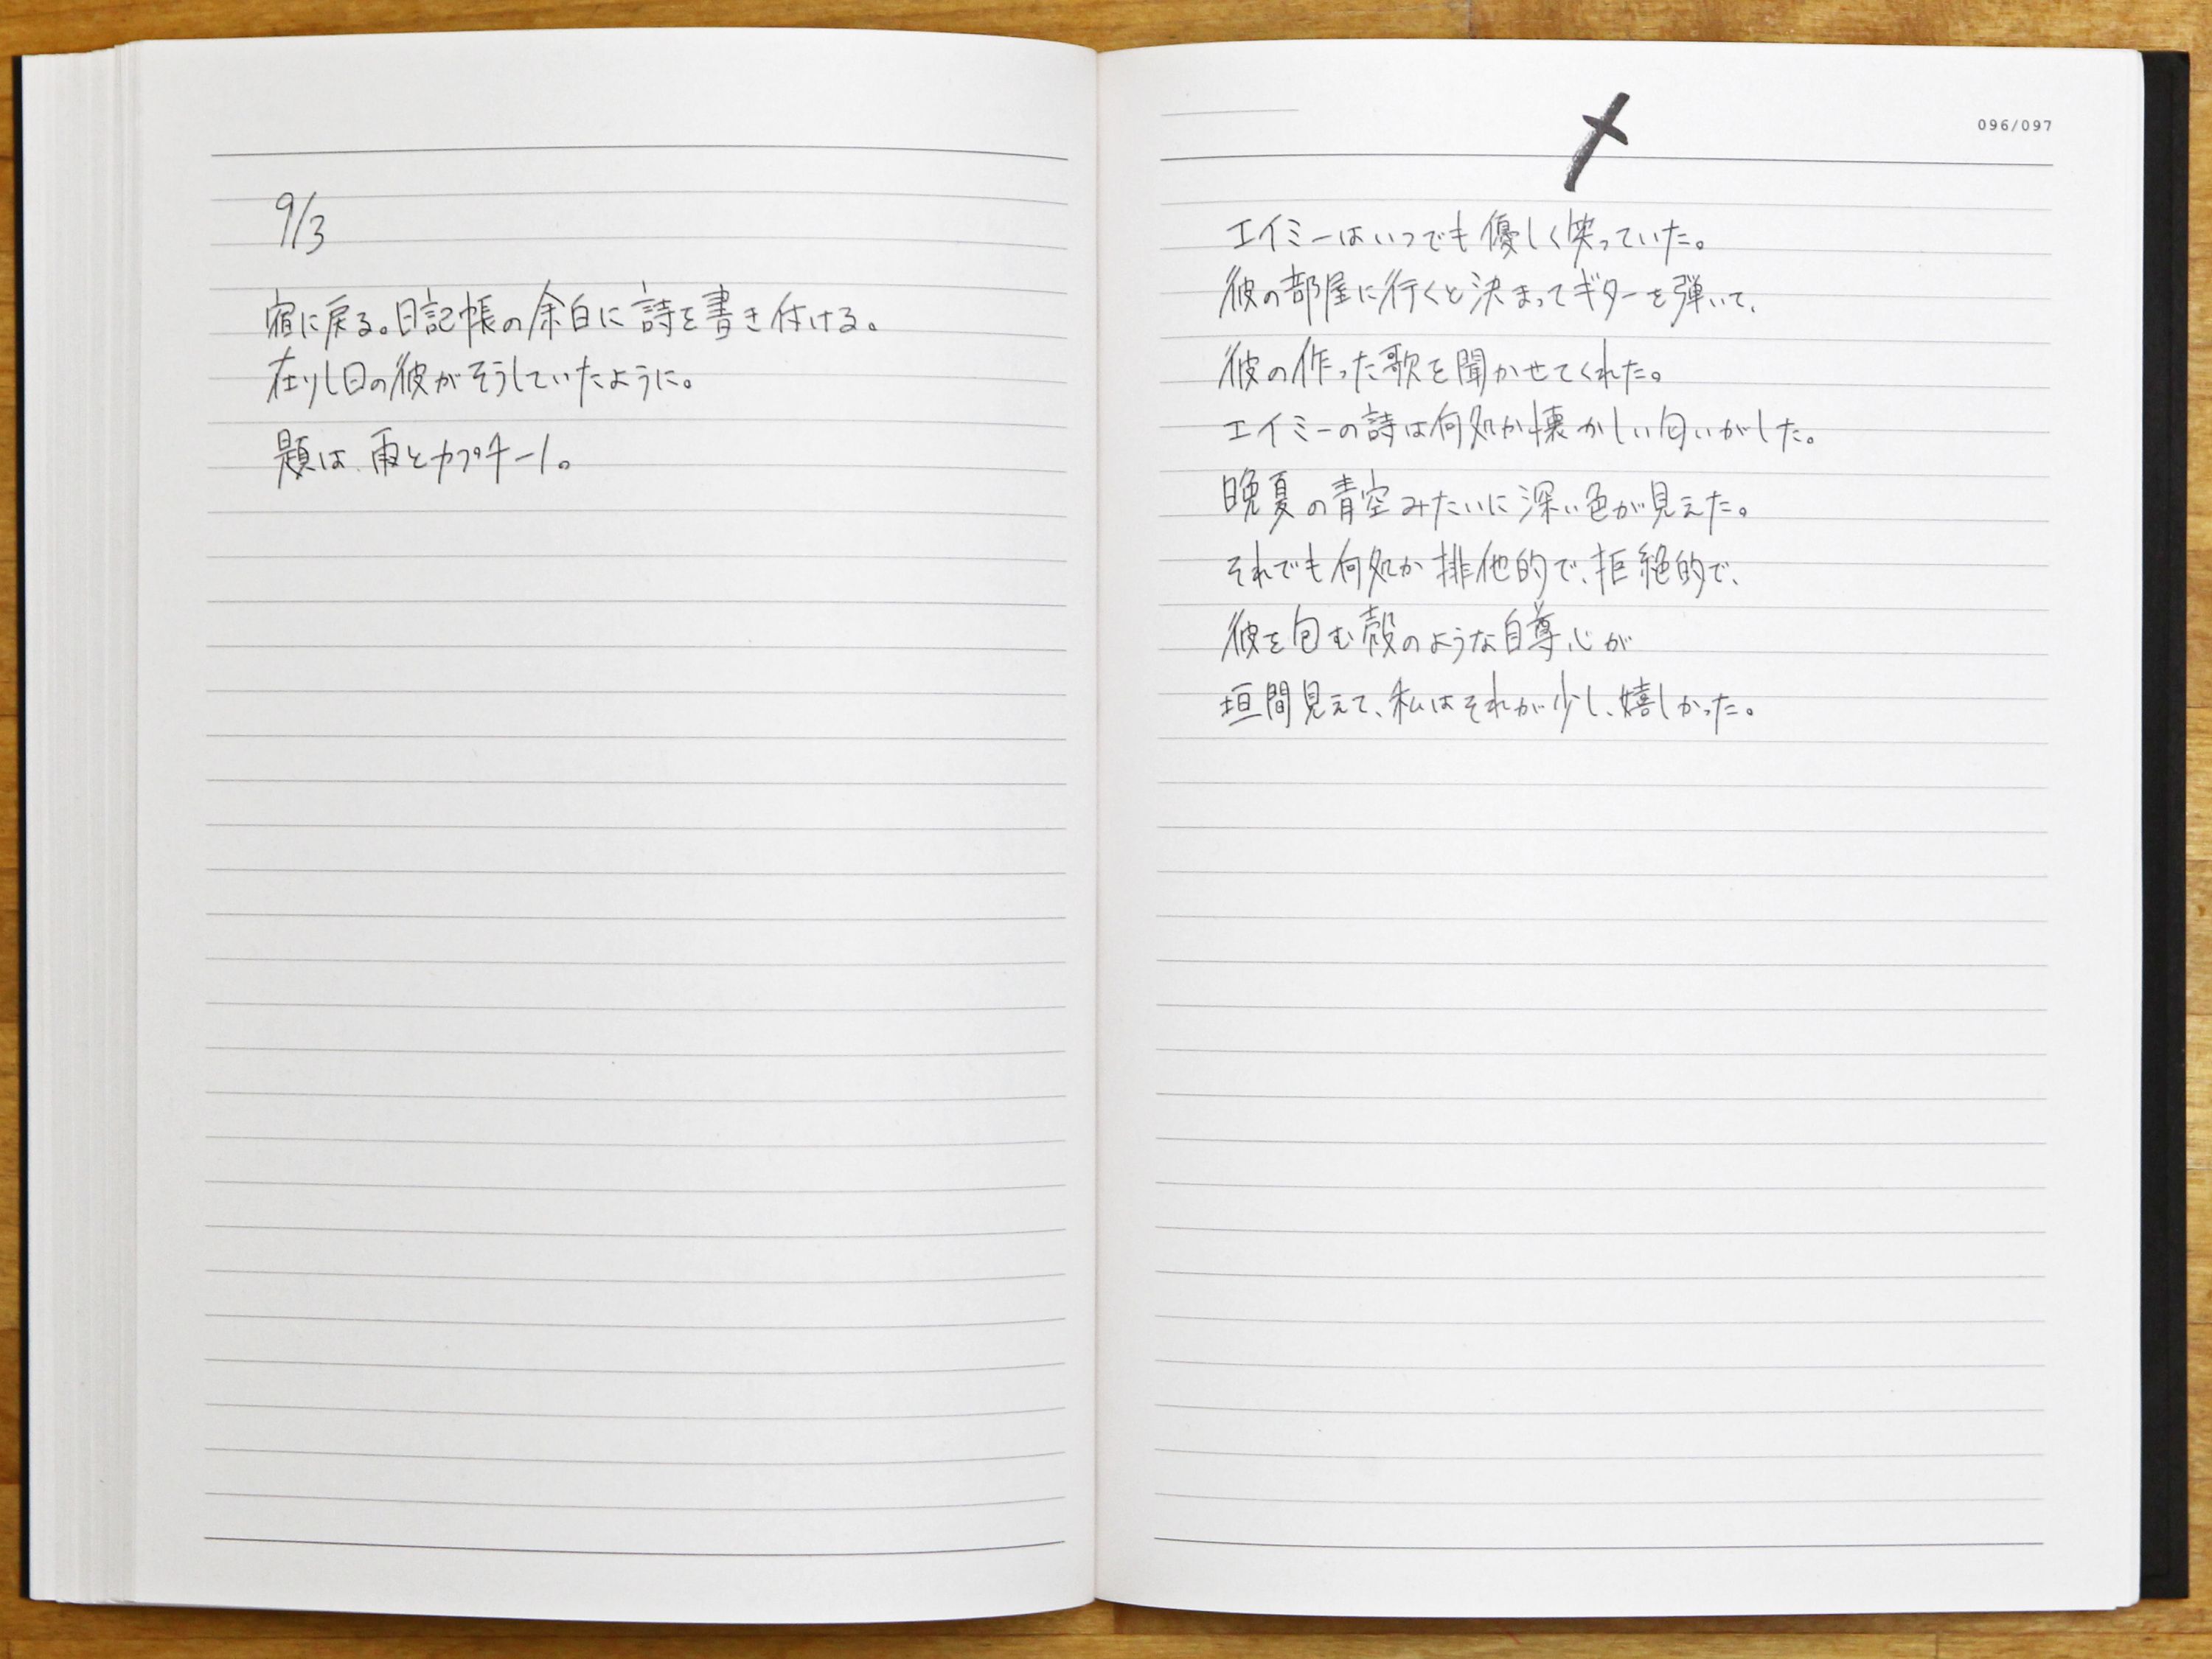 9/3
宿に戻る。日記帳の余白に詩を書き付ける。
在りし日の彼がそうしていたように。
題は、雨とカプチーノ。
096/097
エイミーはいつでも優しく笑っていた。
彼の部屋に行くと決まってギターを弾いて、
彼の作った歌を聞かせてくれた。
エイミーの詩は何処か懐かしい匂いがした。
晩夏の青空みたいに深い色が見えた。
それでも何処か排他的で、拒絶的で、
彼を包む殻のような自尊心が
垣間見えて、私はそれが少し、嬉しかった。